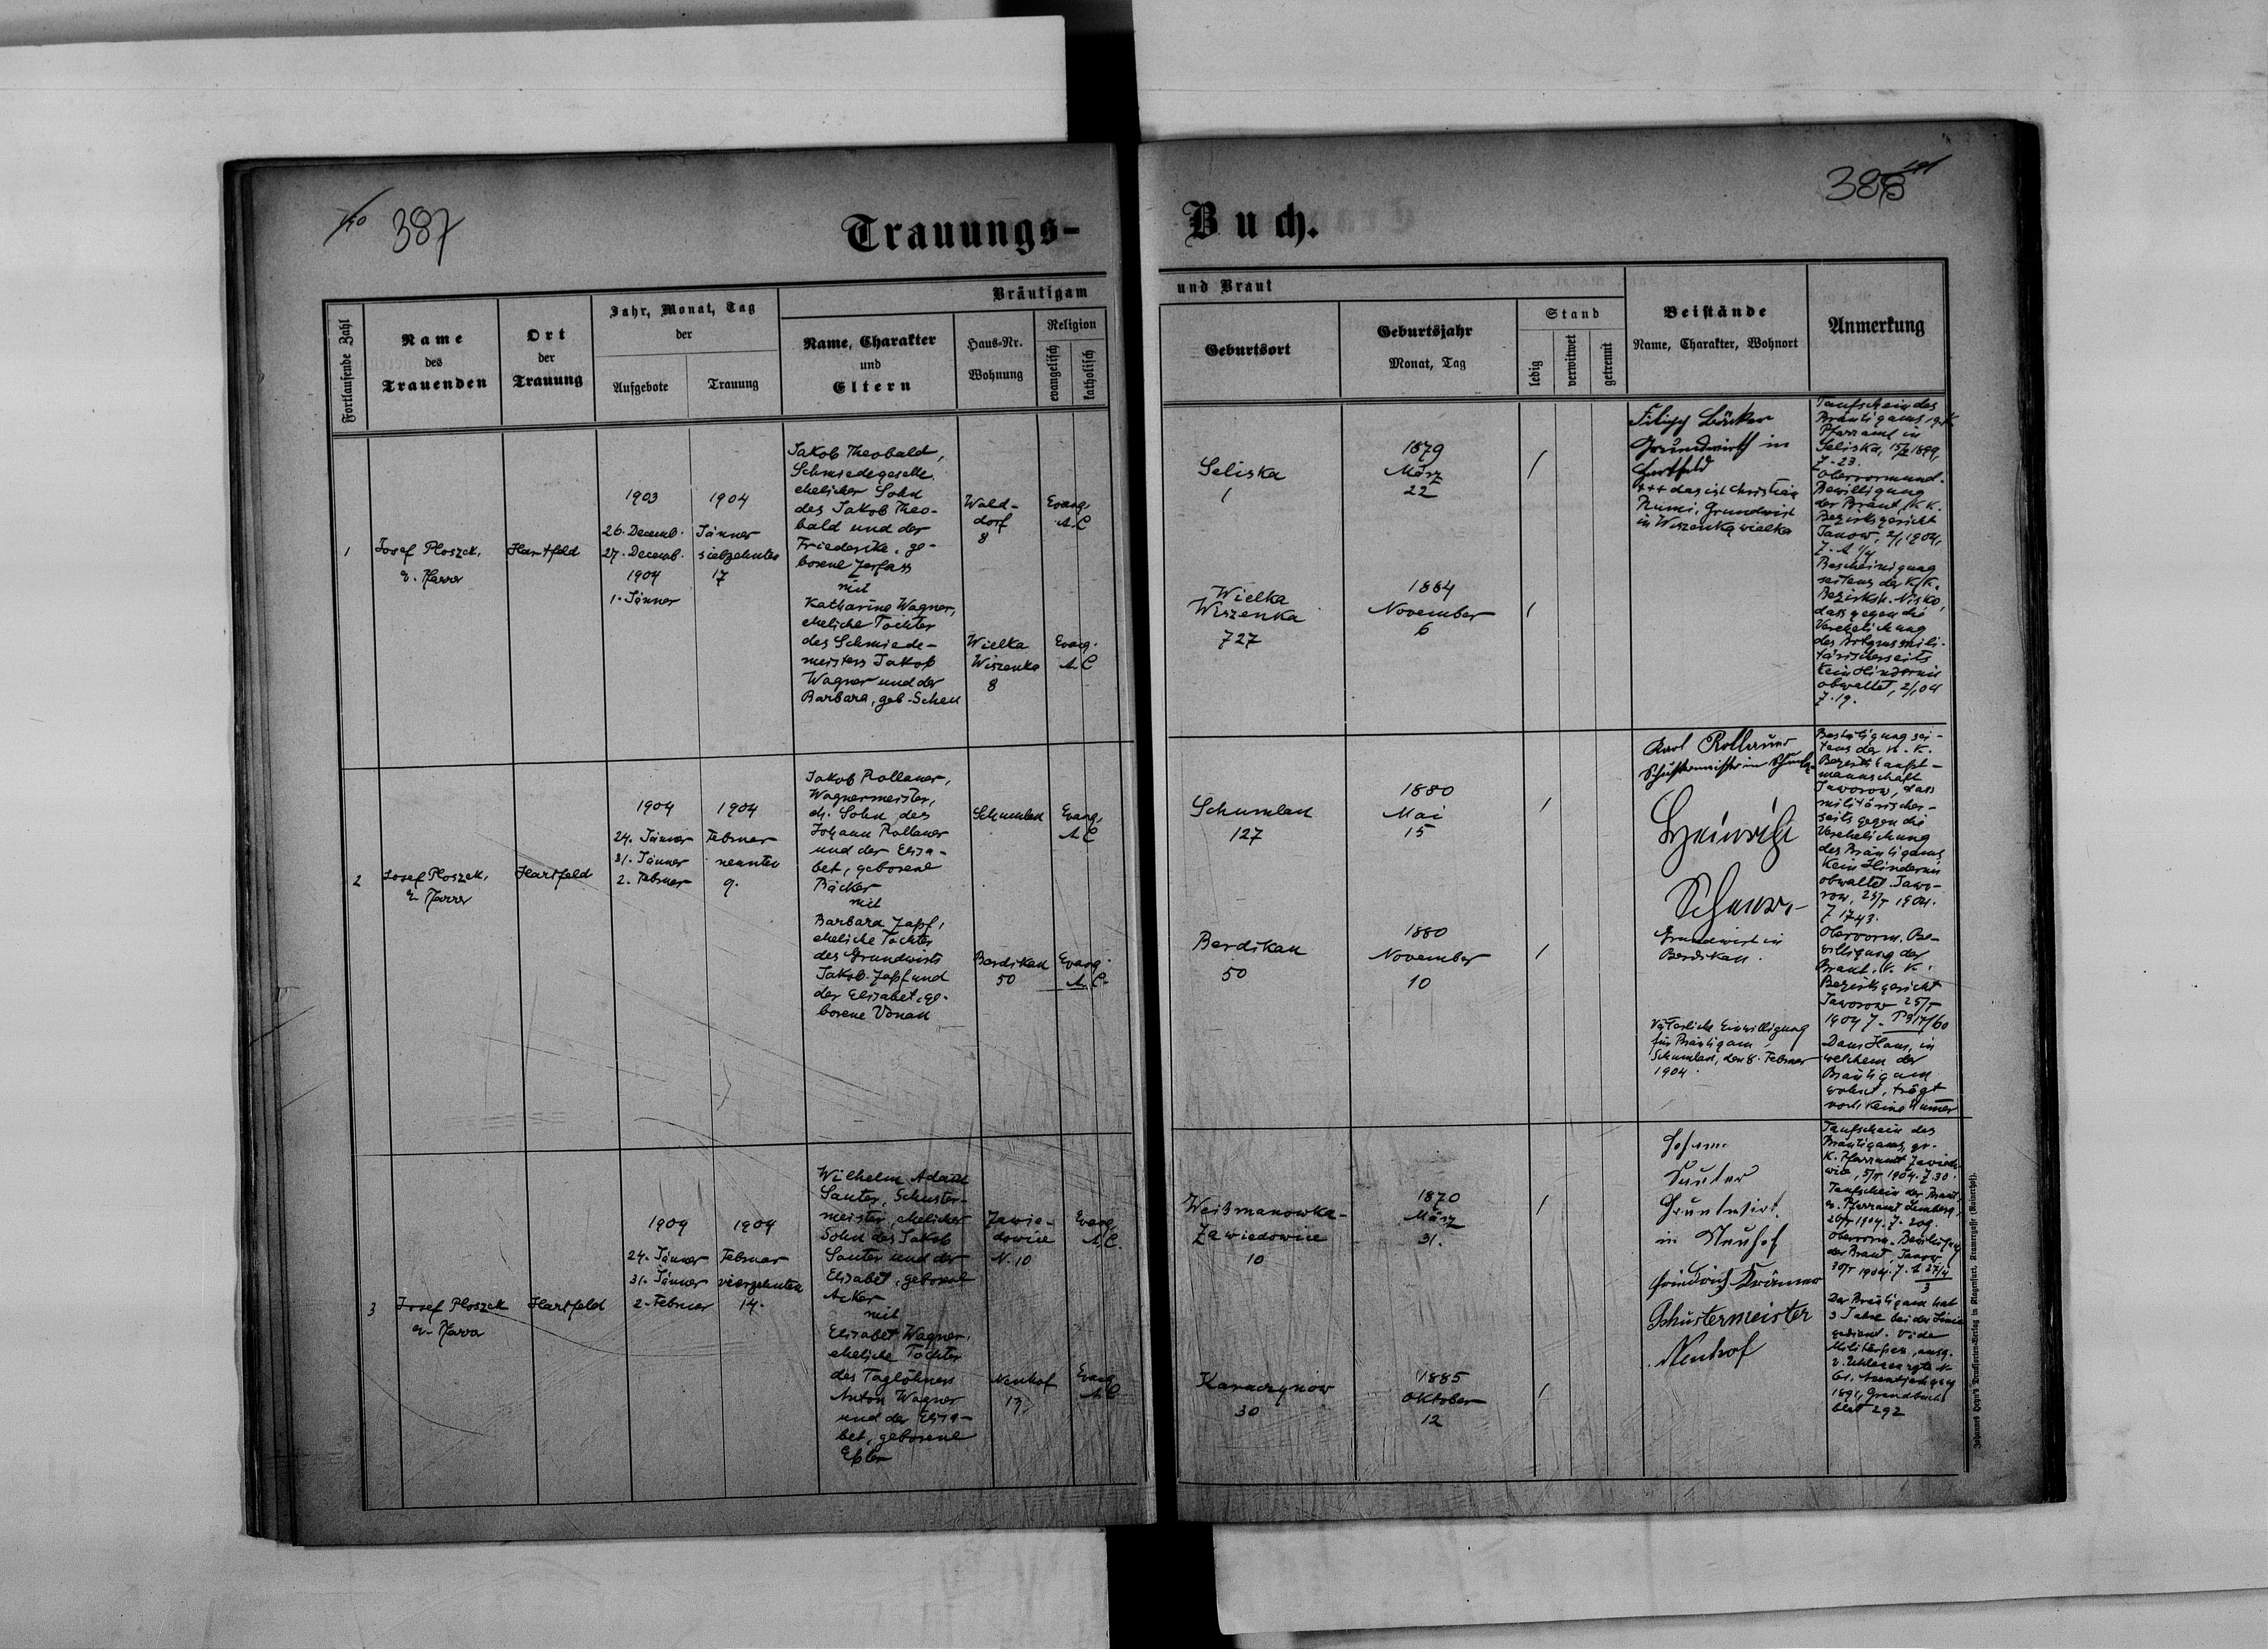 387
388
Trauungs-
Buch.
Fortlaufende Zahl
Name
des
Trauenden
Ort
der
Trauung
Jahr, Monat, Tag
der
Aufgebote
Trauung
Bräutigam
Name, Charakter
und
Eltern
Haus-Nr.
Wohnung
Religion
evangelisch
katholisch
und Braut
Geburtsort
Geburtsjahr
Monat, Tag
Stand
ledig
verwitwet
getrennt
Beistände
Name, Charakter, Wohnort
Anmerkung
1
Josef Ploszek,
Hartfeld
1903
26. Decemb.
27. Decemb.
1904
1. Jänner
1904
Jänner
siebzehnten
17
Jakob Theobald,
Schmiedegeselle
ehelicher Sohn
des Jakob Theo-
bald und der
Friederike, ge-
borene Zerfass
mit
Katharina Wagner,
eheliche Tochter
des Schmiede-
meisters Jakob
Wagner und der
Barbara, geb. Scheu
Wald-
dorf
8
Evang.
A.C
Wielka
Wiszenka
8
Evang.
A.C
Seliska
1
1879
März
22
Wielka
Wiszenka
727
1884
November
6
Grundwirth in
Hartfeld
+++ das ist Christian
Grundwirt
in Wiszenka wielka
Taufschein des
Bräutigams
Pfarramt in
Seliska,
Z. 23.
Obervormund.
Bewilligung
der Braut, K.K.
Bezirksgericht
Janow, 2/1 1904,
Bescheinigung
seitens der K.K.
Bezirksh. Nisko,
dass gegen die
Verehelichung
des Bräutigams mili-
tärischerseits
kein Hindernis
obwaltet, 2/1 04
Z. 19.
2
Josef Ploszek,
Hartfeld
1904
24. Jänner
31. Jänner
2. Februar
1904
Februar
neunten
9.
Jakob Rollauer,
Wagnermeister,
eh. Sohn des
Johann Rollauer
und der Elisa-
bet, geborene
Bäcker
mit
Barbara Zapf,
eheliche Tochter
des Grundwirts
Jakob Zapf und
der Elisabet, ge-
borene Vonau
Schumlau
Evang.
A.C
Berdikau
50
Evang.
A.C.
Schumlau
127
1880
Mai
15
Berdikau
50
1880
November
10
Karl Rollauer
Schustermeister in
Heinrich
Grundwirt in
Berdikau.
Väterliche Einwilligung
für Bräutigam,
Schumlau, den 8. Februar
1904.
Bestätigung sei-
tens der K.K.
Bezirkshaupt-
mannschaft
Jaworow, dass
militärischer-
seits gegen die
Verehelichung
des Bräutigams
kein Hindernis
obwaltet. Jawo-
row, 1904.
Z 1743.
Obervorm. Be-
willigung der
Braut. K.K.
Bezirksgericht
Jaworow
1904 Z.
Haus, in
welchem der
Bräutigam
wohnt, trägt
noch keine Numer
3
Josef Ploszek
Hartfeld
1904
24. Jänner
31. Jänner
2. Februar
1904
Februar
vierzehnten
14.
Wilhelm Adam
Sauter, Schuster-
meister, ehelicher
Sohn des Jakob
Sauter und der
Elisabet, geborene
Acker
mit
Elisabet Wagner,
eheliche Tochter
des Taglöhners
Anton Wagner
und der Elisa-
bet, geborene
Zawie-
dowice
N. 10
Evang.
A.C.
Neuhof
Evang
A.C
Weißmanowka-
Zawiedowice
10
1870
März
31.
Karaczynow
30
1885
Oktober
12
Johann
Sauter
Grundwirt
in Neuhof
Friedrich Krämer
Schustermeister
Neuhof
Taufschein des
Bräutigams, gr.
K. Pfarramt
1904. Z. 30.
Taufschein der Braut,
Pfarramt Lemberg,
1904. Z. 209.
Obervorm. Bewilligung
der Braut, Janow,
1904.
Der Bräutigam hat
3 Jahre bei der Linie
gedient. Vide
1891, Grundbuchs
blatt 292
Johannes Heyn's Drucksorten-Verlag in Klagenfurt, Kramergasse (Rainerhof).